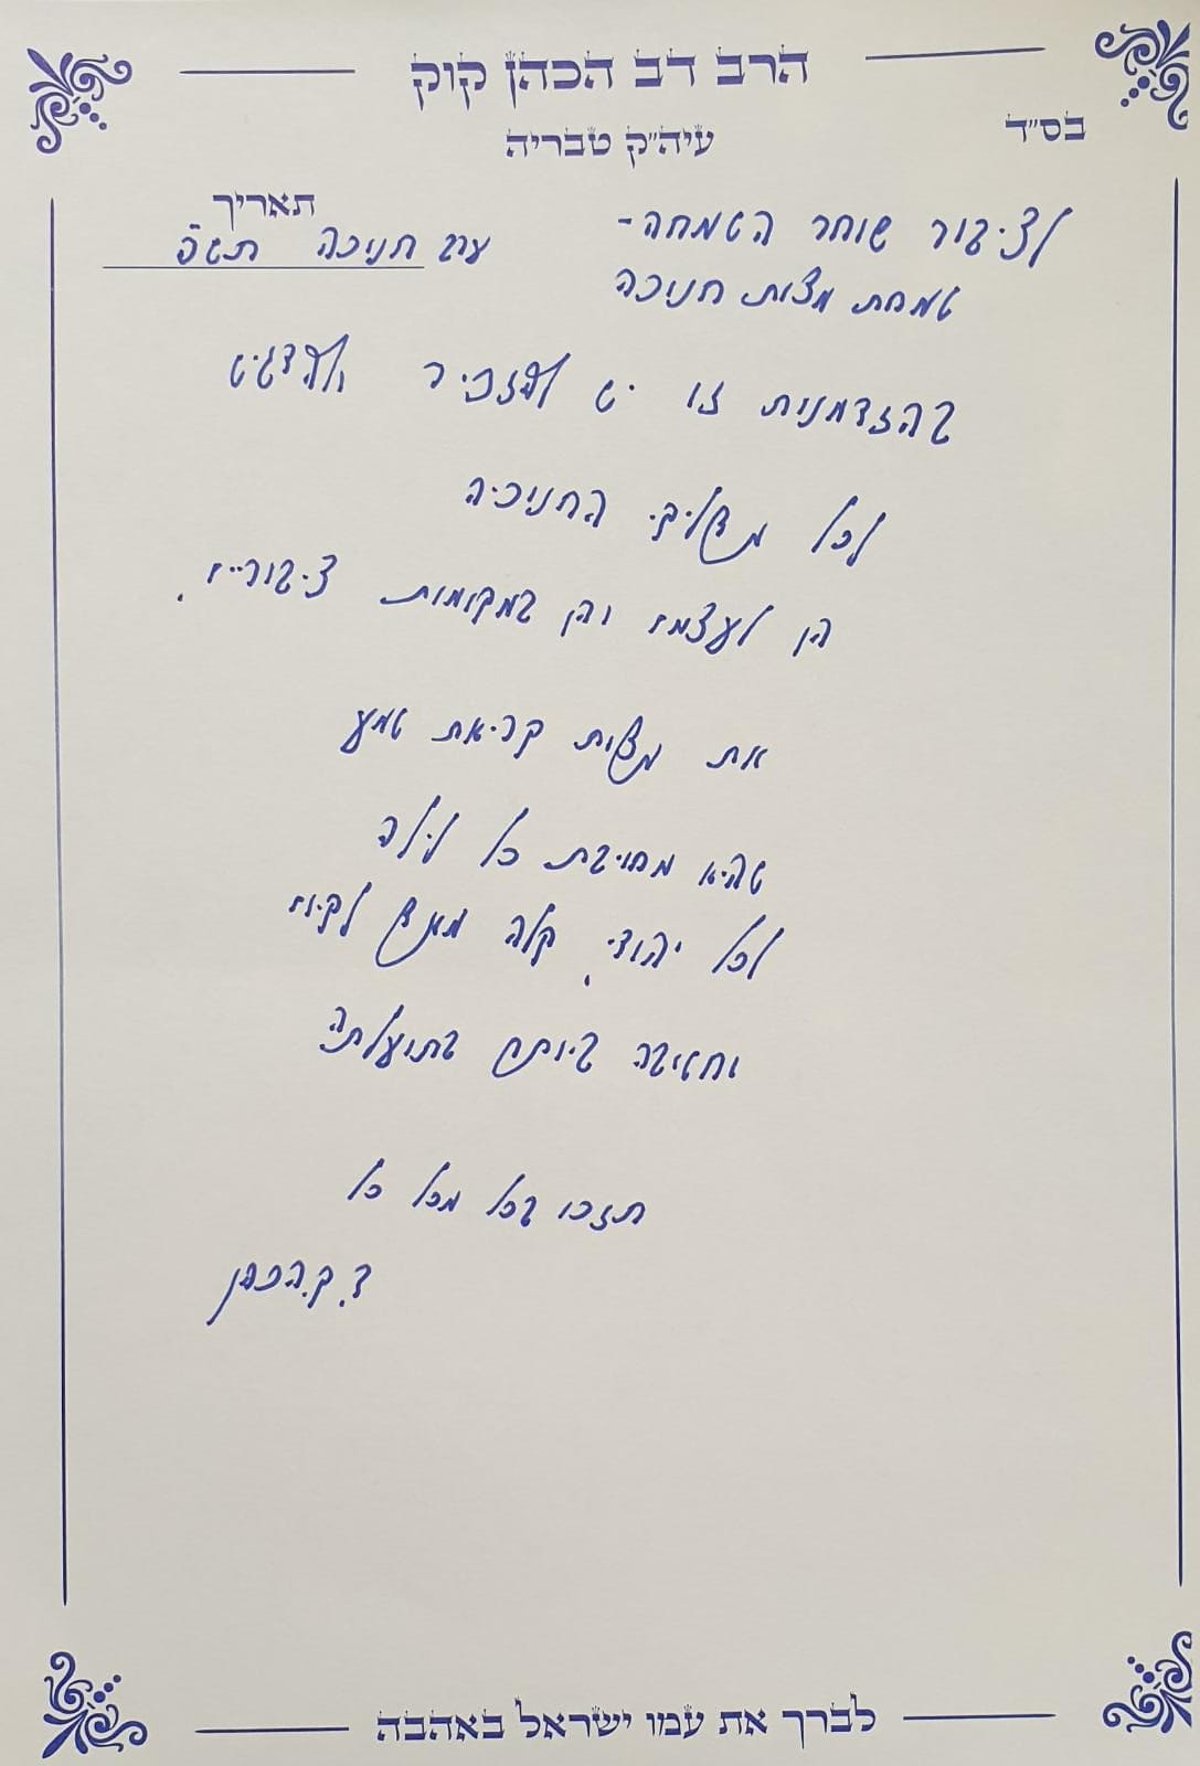 הרב דב הכהן קוק
עיה״ק טבריה
בס״ד
תאריך
ערב חנוכה תש״פ
לציבור שוחר השמחה-
שמחת מצות חנוכה
בהזדמנות זו יש להזכיר ולהדגיש
לכל מדליקי החנוכיה
הן לעצמם והן במקומות ציבוריים,
את מצוות קריאת שמע
שהיא מחויבת כל לילה
לכל יהודי, קלה מאד לקיום
וחשובה ביותר בתועלתה
תזכו בכל מכל כל
ד.ק.הכהן
לברך את עמו ישראל באהבה